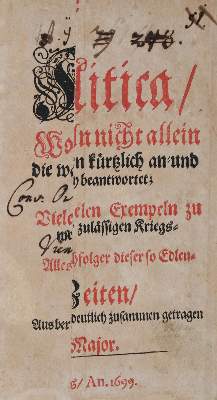 litica /
Wo ln nicht allein
die w n kürtzlich an und
beantwortet;
Conv.
Viele len Exempeln zu
zulässigen Kriegs-
Alles folger dieser so Edlen-
Zeiten /
Aus ber deutlich zusammen getragen
Major.
/ An. 1699.